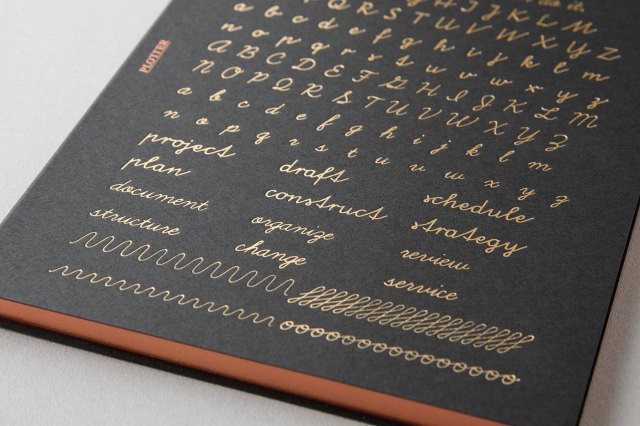 H I J K L M
P Q R S T U V W X Y Z
a b c d e f g h i j k l m
n o p q r s t u v w x y z
A B C D E F G H I J K L M
N O P Q R S T U V W X Y Z
a b c d e f g h i j k l m
n o p q r s t u v w x y z
project draft schedule
plan construct strategy
document organize review
structure change service
PLOTTER